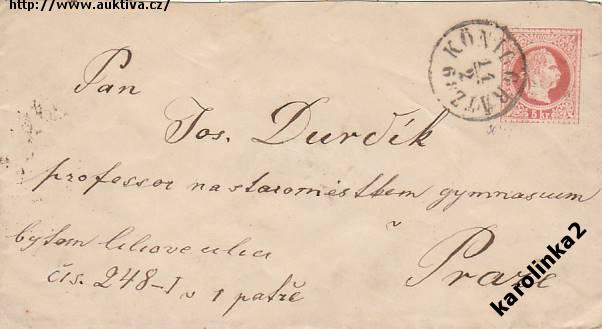 http://www.auktiva.cz/
KÖNIGGRÄTZ
11
2
69
5 kr.
Pan
Jos. Durdík
professor na staroměstkem gymnasium
v Praze
bytem liliove ulici
čís. 248-I v 1 patře
karolinka2